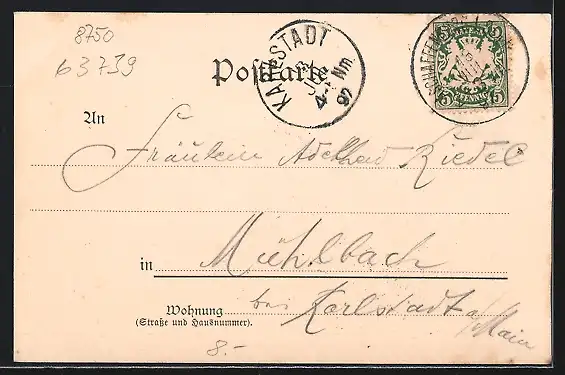 8750
63739
Postkarte
KARLSTADT
4-5 Nm.
97
ASCHAFFENBURG
5 5
BAYERN
PFENNIG
5 5
An
Fräulein Adelheid Riedel
in Mühlbach
Wohnung
(Straße und Hausnummer).
bei Karlstadt a/Main
8.-